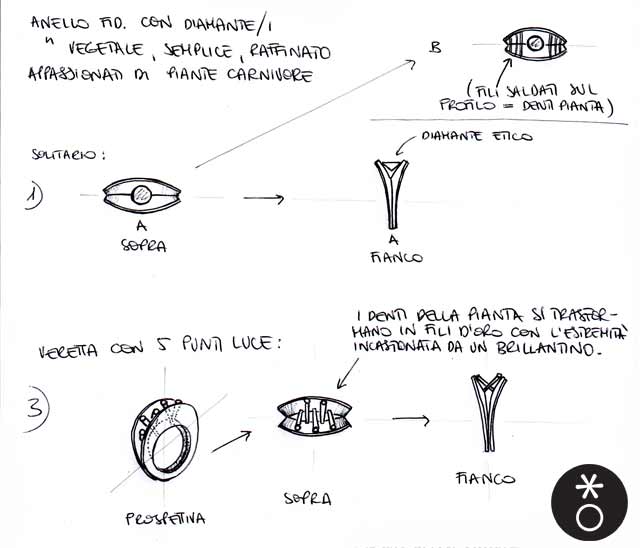 ANELLO FID. CON DIAMANTE/I
" VEGETALE, SEMPLICE, RAFFINATO
APPASSIONATI DI PIANTE CARNIVORE
B
(FILI SALDATI SUL
PROFILO = DENTI PIANTA)
DIAMANTE ETICO
SOLITARIO:
1)
A
SOPRA
A
FIANCO
I DENTI DELLA PIANTA SI TRASFOR-
MANO IN FILI D'ORO CON L'ESTREMITÀ
INCASTONATA DA UN BRILLANTINO.
VERETTA CON 5 PUNTI LUCE:
3)
PROSPETTIVA
SOPRA
FIANCO